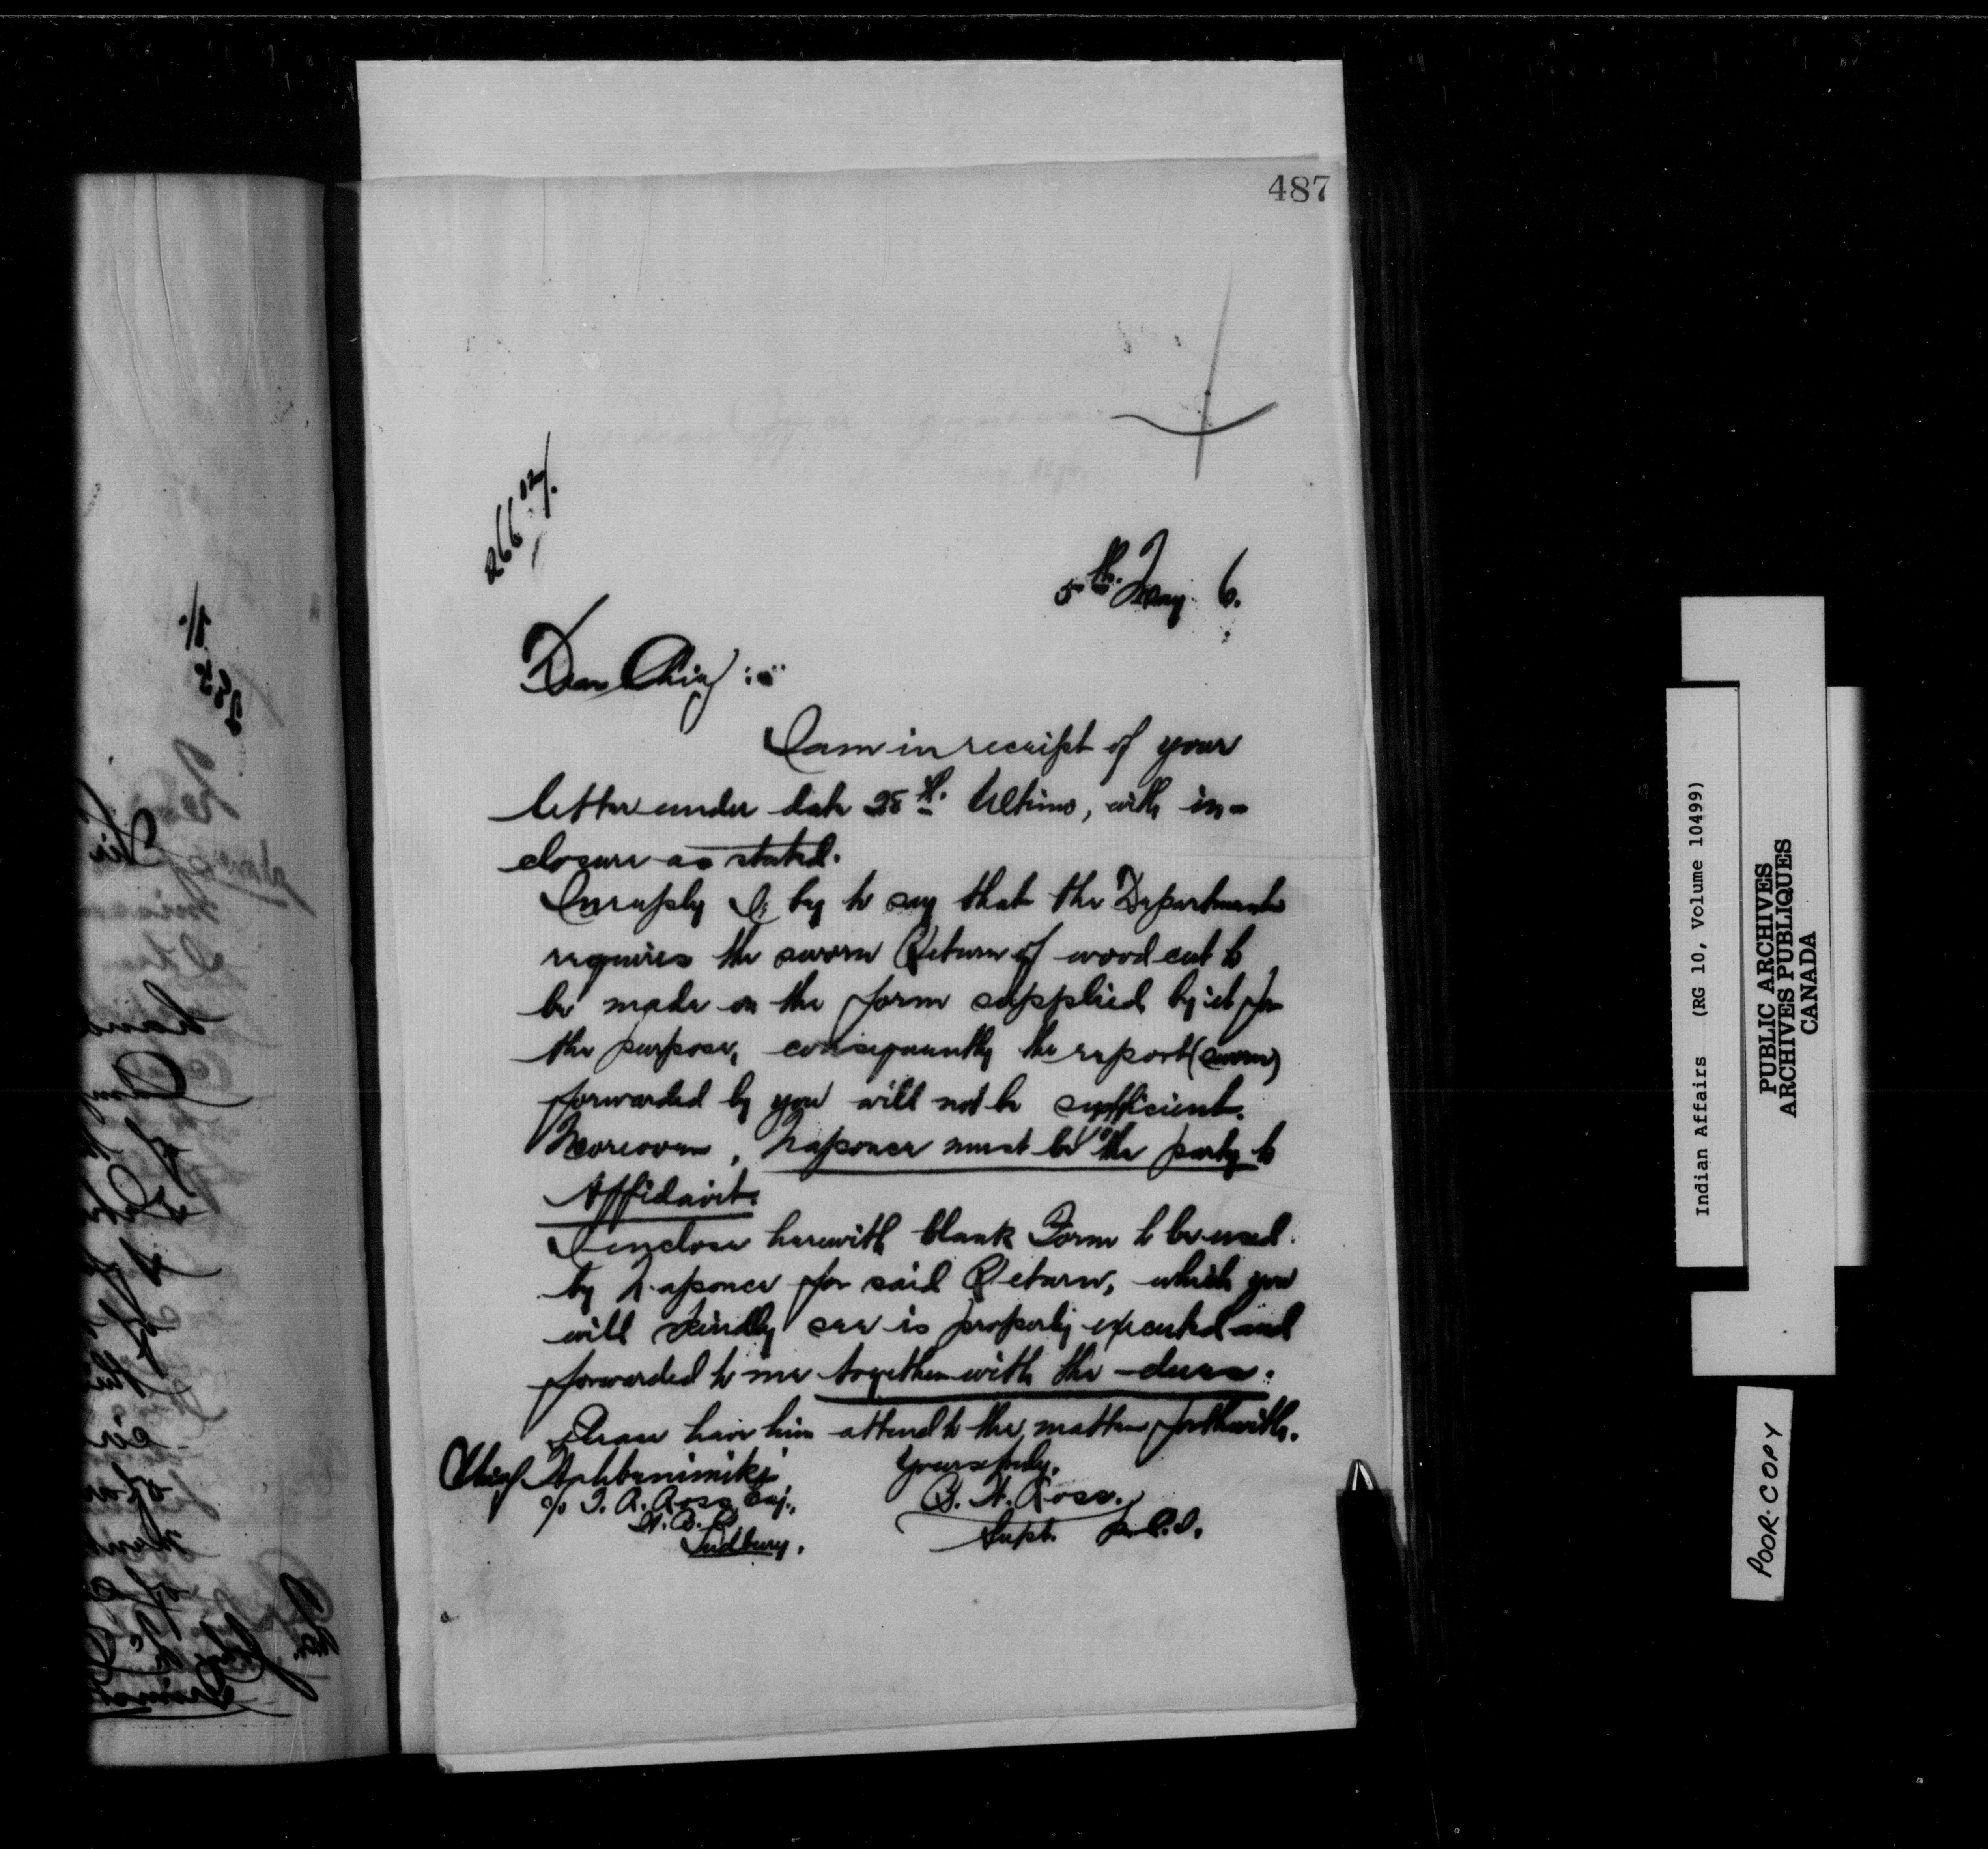 487
5th. May 6.
Dear Chief :
I am in receipt of your
letter under date 28th. Ultimo, with in-
closure as stated.
In reply I beg to say that the Department
requires the sworn Return of wood cut to
be made on the form supplied by it for
the purpose, consequently the report (sworn)
forwarded by you will not be sufficient.
Moreover, Naponce must be the party to
Affidavit.
I enclose herewith blank Form to be used
by Naponce for said Return, which you
will kindly see is properly executed and
forwarded to me together with the dues.
Please have him attend to the matter forthwith.
Chief
c/o T. R. Ross Esq.,
Sudbury.
Yours truly,
B. W. Ross.
Supt.
Indian Affairs (RG 10, Volume 10499)
PUBLIC ARCHIVES
ARCHIVES PUBLIQUES
CANADA
POOR COPY